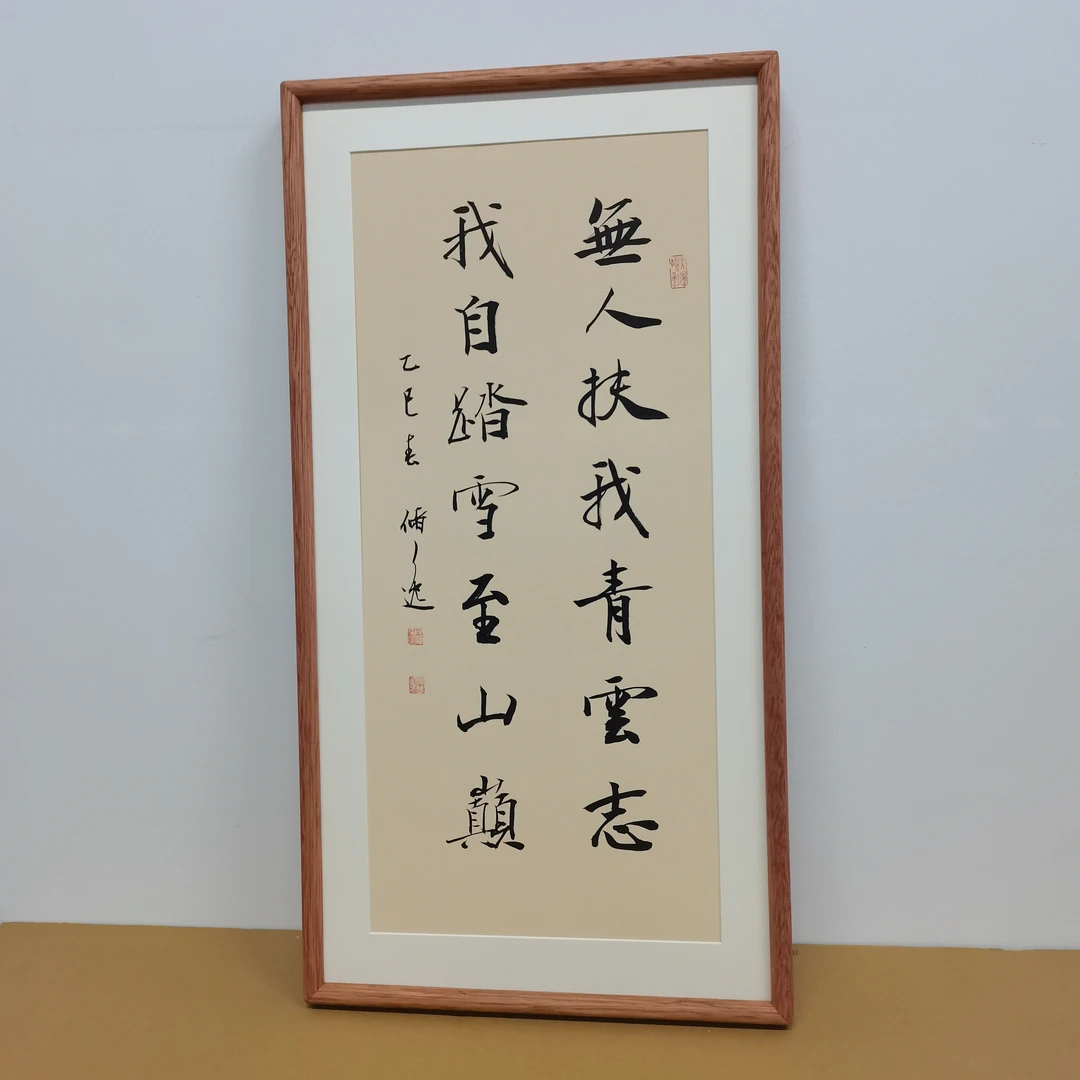 無人扶我青雲志
我自踏雪至山巔
乙巳春